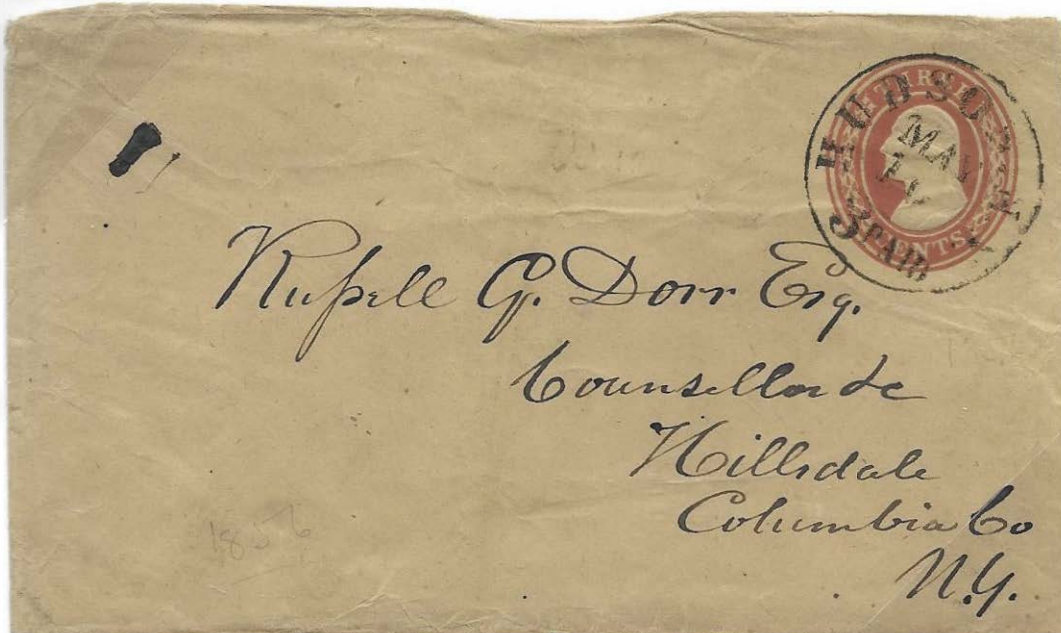 THREE
HUDSON
MAY
3 PAID
N.Y.
CENTS
Rufsell G. Dorr Esq.
Counsellor &c
Hillsdale
Columbia Co
N.Y.
1856